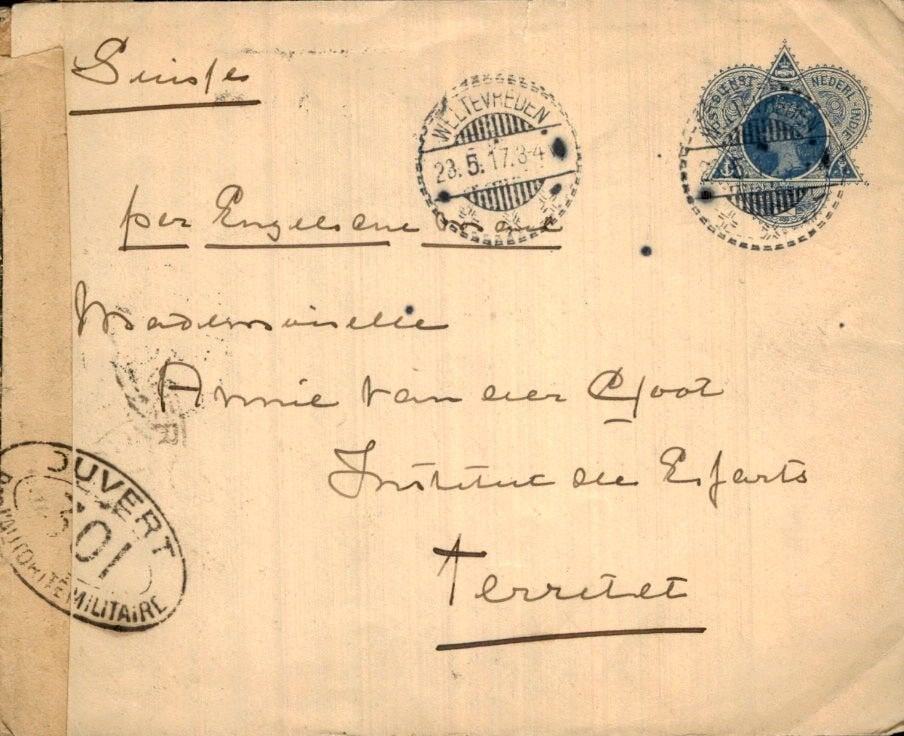 Suisse
WELTEVREDEN
23.5.17.3-4
POSTDIENST NEDERL.-INDIE
per Engelsche
Mademoiselle
Annie van der
Institut des Essarts
Territet
OUVERT
301
PAR L'AUTORITÉ MILITAIRE
R